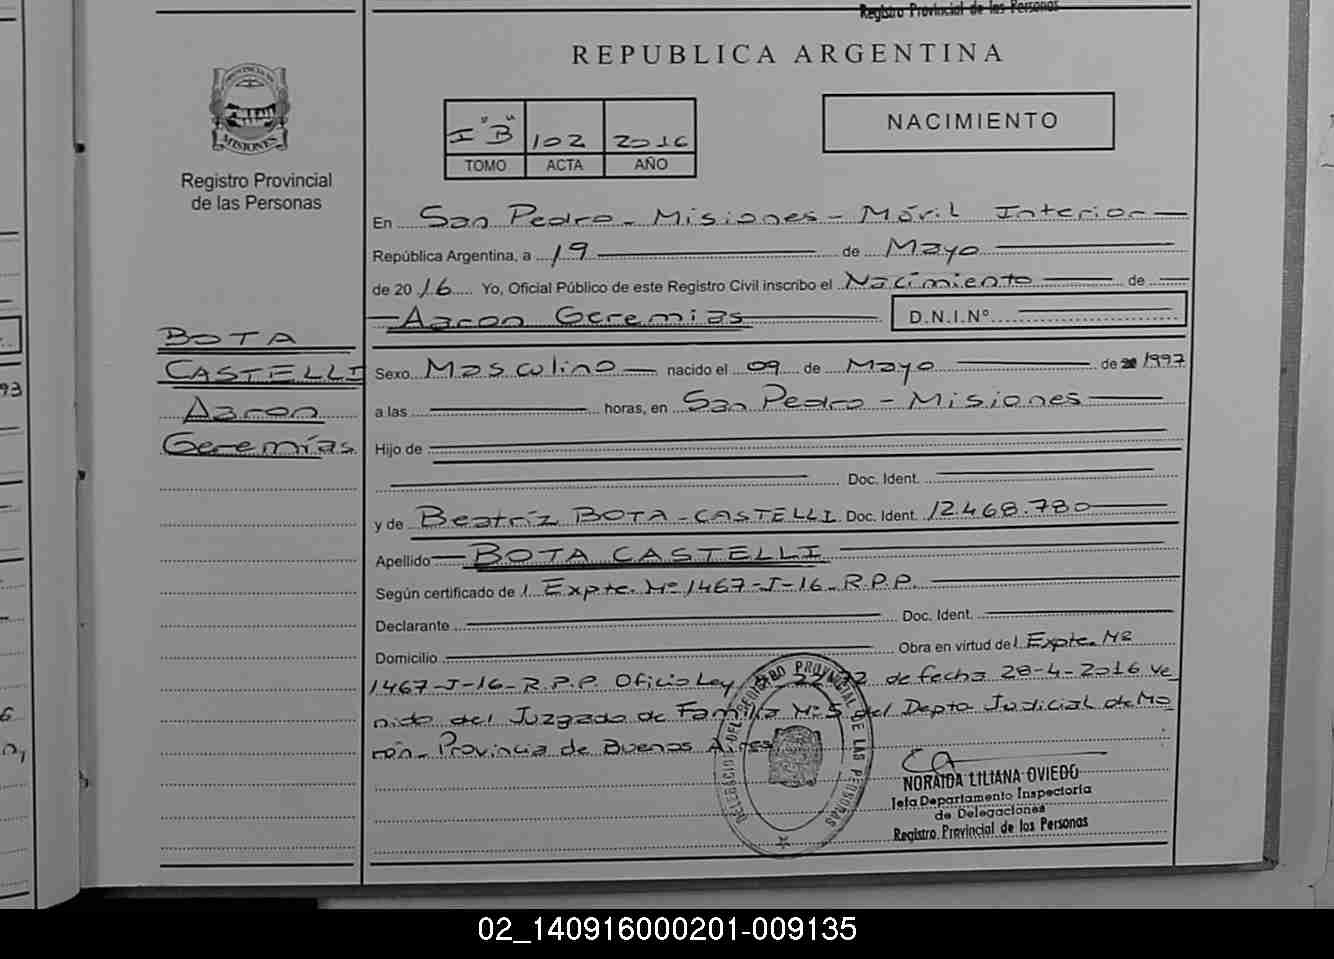 Registro Provincial de las Personas
REPUBLICA ARGENTINA
PROVINCIA DE
MISIONES
Registro Provincial
de las Personas
I "B" 102 2016
TOMO ACTA AÑO
NACIMIENTO
En San Pedro - Misiones - Móvil Interior
República Argentina, a 19 de Mayo
de 2016 Yo, Oficial Público de este Registro Civil inscribo el Nacimiento de
Aaron Geremias D.N.I.Nº
BOTA
CASTELLI
Aaron
Geremías
Sexo Masculino nacido el 09 de Mayo de 1997
a las horas, en San Pedro - Misiones
Hijo de
Doc. Ident.
y de Beatríz BOTA-CASTELLI Doc. Ident. 12.468.780
Apellido BOTA CASTELLI
Según certificado de l Expte. Nº 1467-J-16- R.P.P.
Declarante Doc. Ident.
Domicilio Obra en virtud del Expte. Nº
1467-J-16-R.P.P. Oficio Ley 22172 de fecha 28-4-2016 ve
nido del Juzgado de Familia Nº 5 del Depto Judicial de Mo
rón- Provincia de Buenos Aires
DEL REGISTRO PROVINCIAL DE LAS PERSONAS
NORAIDA LILIANA OVIEDO
Jefa Departamento Inspectoria
de Delegaciones
Registro Provincial de las Personas
93
6
n,
02_140916000201-009135